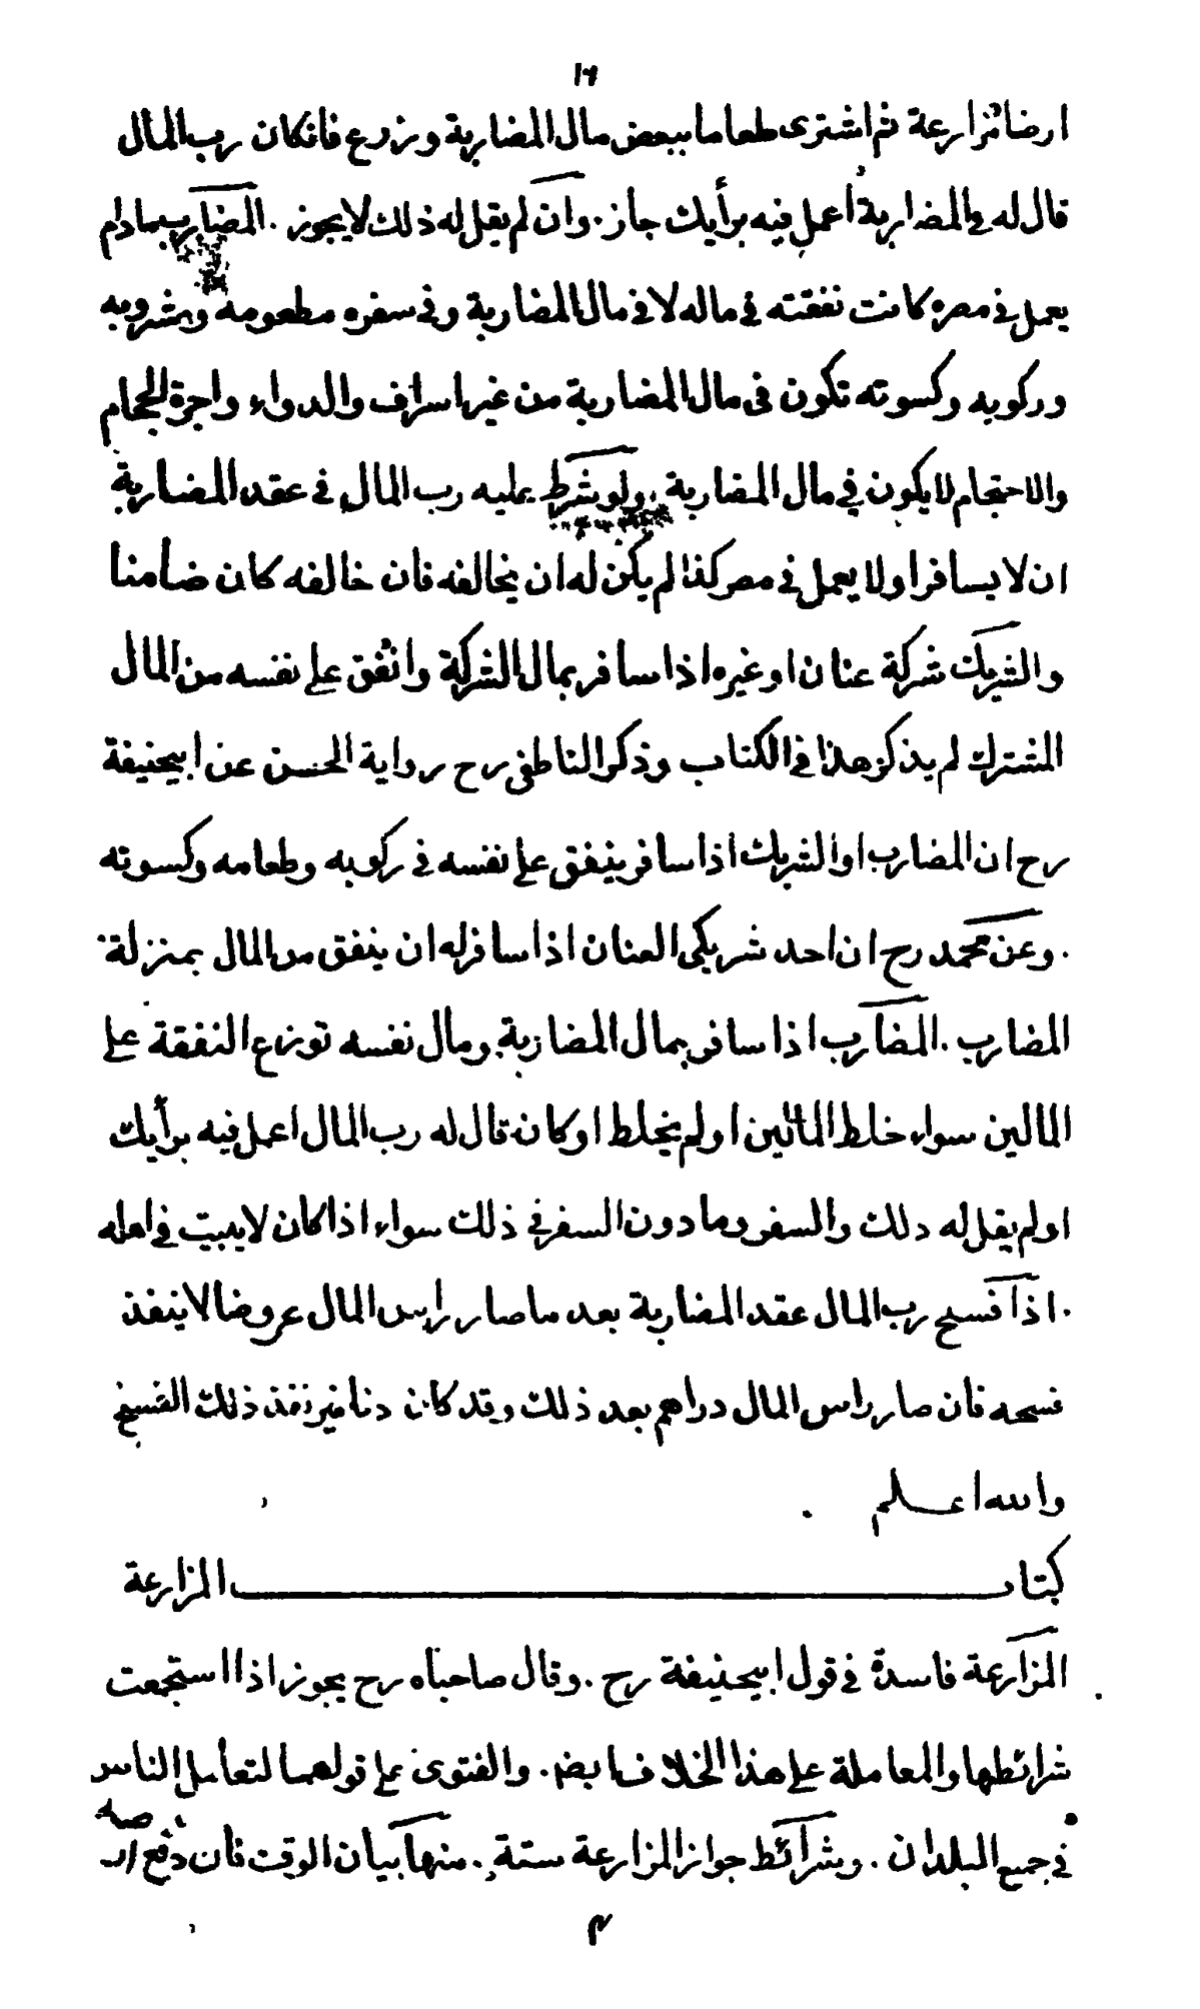 ١٦
ارضا مزارعة ثم اشترى طعاما ببعض مال المضاربة وزرع فان كان رب المال
قال له في المضاربة اعمل فيه برأيك جاز . وان لم يقل له ذلك لا يجوز . المضارب مادام
يعمل في مصره كانت نفقته في ماله لا في مال المضاربة وفي سفره مطعومه ومشروبه
وركوبه وكسوته تكون في مال المضاربة من غير اسراف والدواء واجرة الحجام
والاحتجام لا يكون في مال المضاربة . ولو شرط عليه رب المال في عقد المضاربة
ان لا يسافر او لا يعمل في مصر كذا لم يكن له ان يخالفه فان خالفه كان ضامنا
والشريك شركة عنان او غيره اذا سافر بمال الشركة وانفق على نفسه من المال
المشترك لم يذكر هذا في الكتاب وذكر الناطفي رح رواية الحسن عن ابيحنيفة
رح ان المضارب او الشريك اذا سافر ينفق على نفسه في ركوبه وطعامه وكسوته
. وعن محمد رح ان احد شريكي العنان اذا سافر له ان ينفق من المال بمنزلة
المضارب . المضارب اذا سافر بمال المضاربة ومال نفسه توزع النفقة على
المالين سواء خلط المالين او لم يخلط او كان قال له رب المال اعمل فيه برأيك
او لم يقل له ذلك والسفر وما دون السفر في ذلك سواء اذا كان لا يبيت في اهله
. اذا فسخ رب المال عقد المضاربة بعد ما صار راس المال عروضا لا ينفذ
فسخه فان صار راس المال دراهم بعد ذلك وقد كان دنانير نفذ ذلك الفسخ
والله اعلم .
كتاب المزارعة
المزارعة فاسدة في قول ابيحنيفة رح . وقال صاحباه رح يجوز اذا استجمعت
شرائطها والمعاملة على هذا الخلاف ايضا . والفتوى على قولهما لتعامل الناس
في جميع البلدان . وشرائط جواز المزارعة ستة . منها بيان الوقت فان دفع ارضه